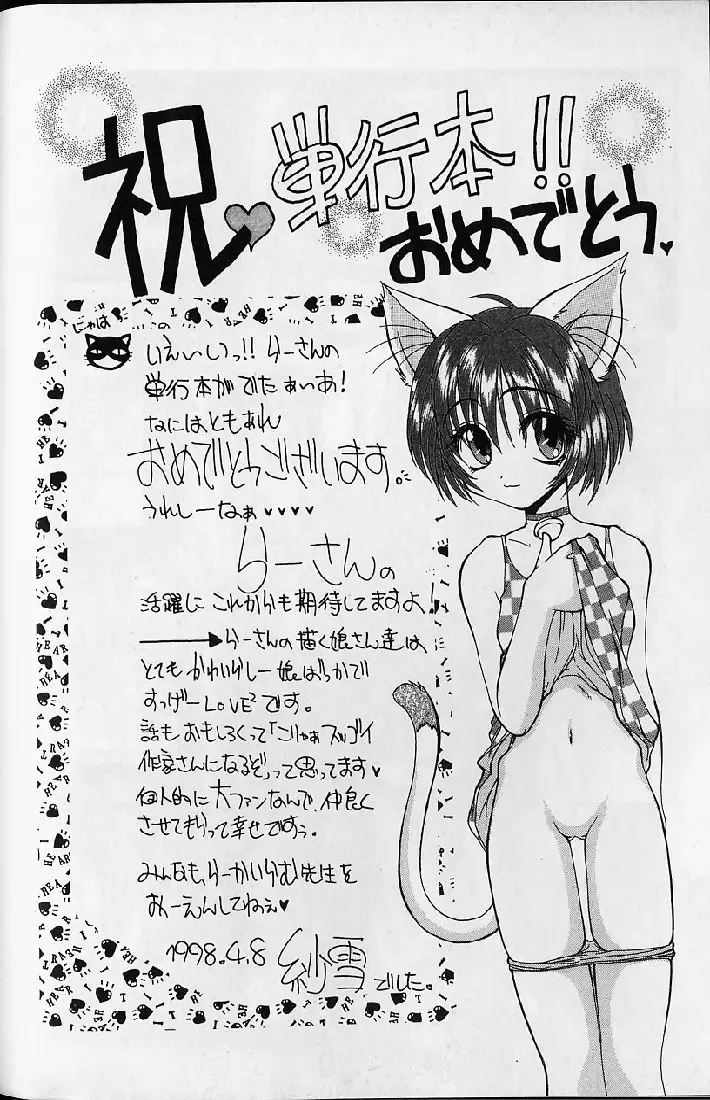 祝♥単行本!!
おめでとう♥
にゃは
いえいいっ!!らーさんの
単行本がでたぁいあ!
なにはともあれ
おめでとうございます。
うれしーなぁ♥♥♥♥
らーさんの
活躍にこれからも期待してますよ
らーさんの描く娘さん達は、
とてもかわいらしー娘ばっかで
すっげーLOVE²です。
話もおもしろくって「こりゃぁスッゴイ
作家さんになるぞ」って思ってます♥
個人的に大ファンなんで、仲良く
させてもらって幸せですぅ。
みんなも、らーかいらむ先生を
おーえんしてねぇ♥
1998.4.8 紗雪でした。